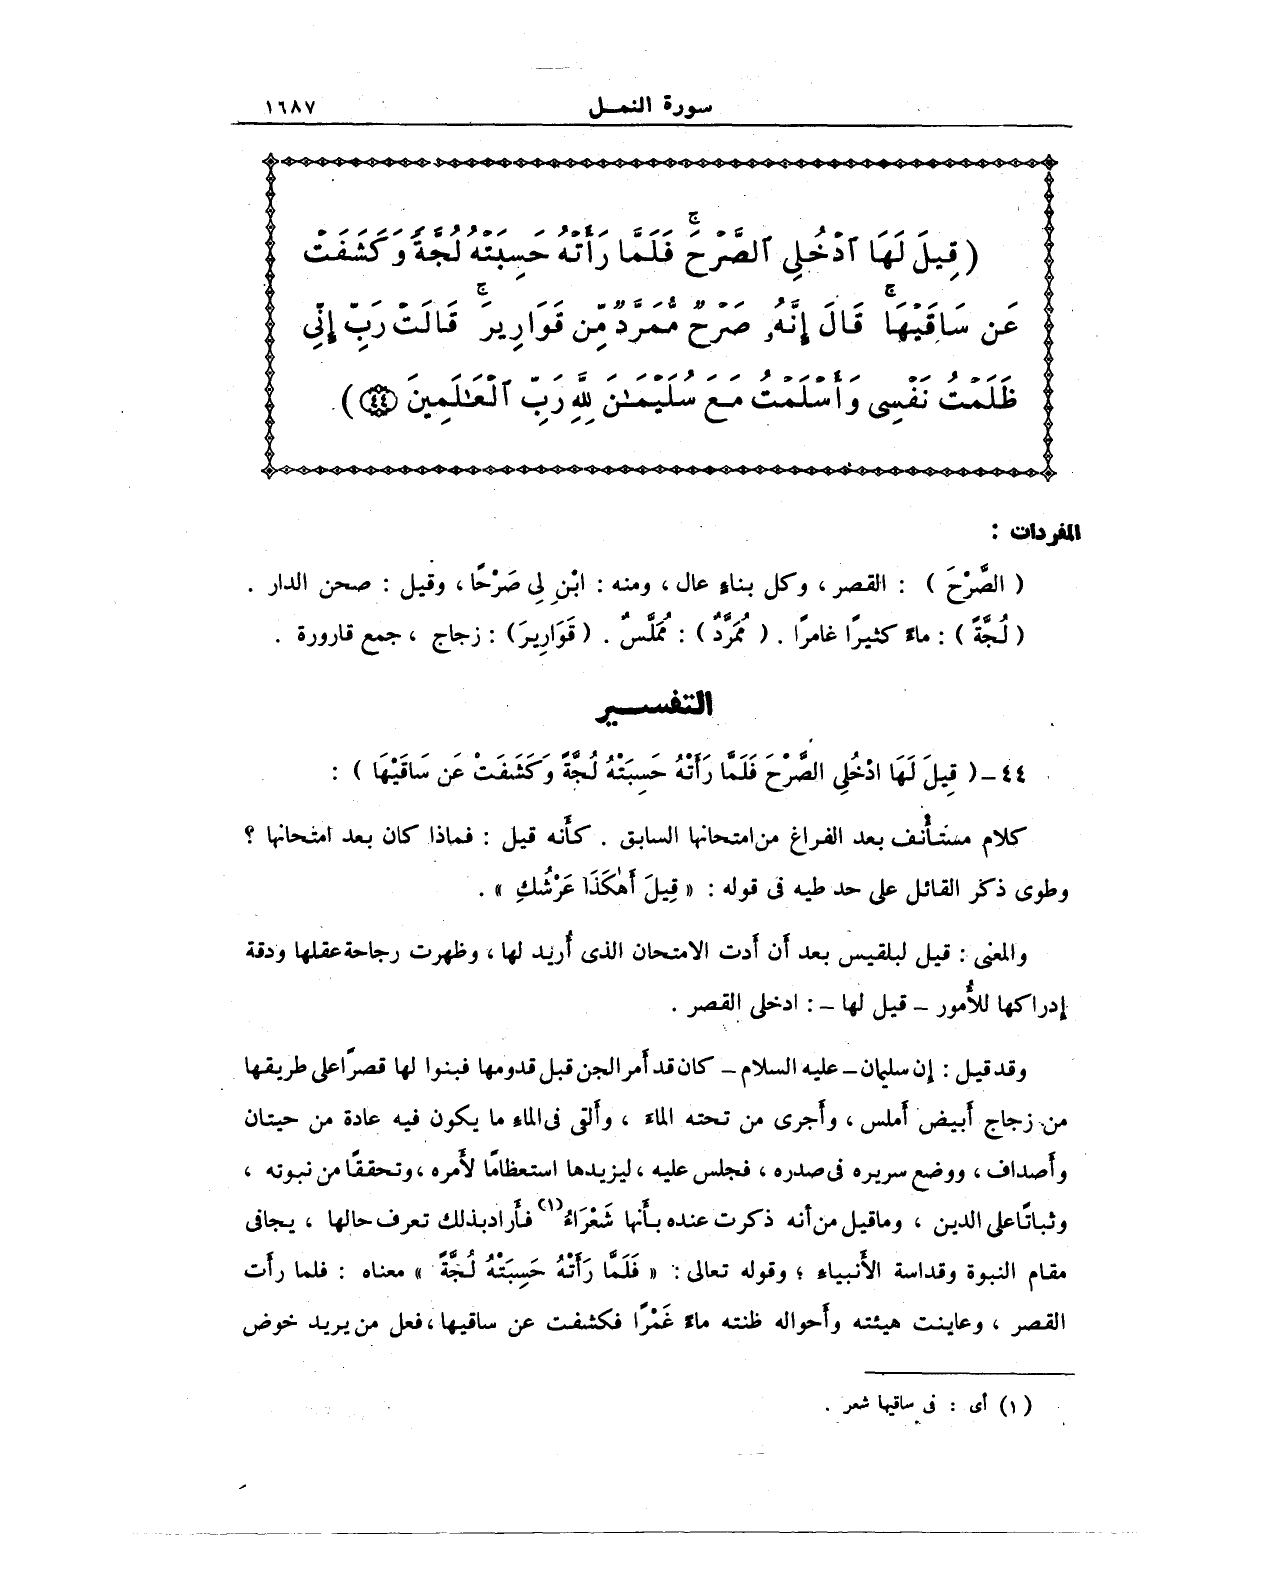 سورة النمــل ١٦٨٧
(قِيلَ لَهَا ٱدْخُلِي ٱلصَّرْحَ ۖ فَلَمَّا رَأَتْهُ حَسِبَتْهُ لُجَّةً وَكَشَفَتْ
عَن سَاقَيْهَا ۚ قَالَ إِنَّهُۥ صَرْحٌ مُّمَرَّدٌ مِّن قَوَارِيرَ ۗ قَالَتْ رَبِّ إِنِّي
ظَلَمْتُ نَفْسِي وَأَسْلَمْتُ مَعَ سُلَيْمَـٰنَ لِلَّهِ رَبِّ ٱلْعَـٰلَمِينَ (٤٤)) .
المفردات :
( الصَّرْحَ ) : القصر ، وكل بناءٍ عال ، ومنه : ابْنِ لِي صَرْحًا ، وقيل : صحن الدار .
( لُجَّةً ) : ماءً كثيرًا غامرًا . ( مُمَرَّدٌ ) : مُمَلَّسٌ . ( قَوَارِيرَ ) : زجاج ، جمع قارورة .
التفســـير
٤٤ــ ( قِيلَ لَهَا ادْخُلِي الصَّرْحَ فَلَمَّا رَأَتْهُ حَسِبَتْهُ لُجَّةً وَكَشَفَتْ عَن سَاقَيْهَا ) :
كلام مستَأْنف بعد الفراغ من امتحانها السابق . كأَنه قيل : فماذا كان بعد امتحانها ؟
وطوى ذكر القائل على حد طيه فى قوله : « قِيلَ أَهَٰكَذَا عَرْشُكِ » .
والمعنى : قيل لبلقيس بعد أَن أَدت الامتحان الذى أُريد لها ، وظهرت رجاحة عقلها ودقة
إدراكها للأُمور ــ قيل لها ــ : ادخلى القصر .
وقد قيل : إن سليمان ــ عليه السلام ــ كان قد أَمر الجن قبل قدومها فبنوا لها قصرًا على طريقها
من زجاج أَبيض أَملس ، وأَجرى من تحته الماءَ ، وأَلقى فى الماءِ ما يكون فيه عادة من حيتان
وأَصداف ، ووضع سريره فى صدره ، فجلس عليه ، ليزيدها استعظامًا لأَمره ، وتحققًا من نبوته ،
وثباتًا على الدين ، وما قيل من أَنه ذكرت عنده بأَنها شَعْرَاءُ(١) فأَراد بذلك تعرف حالها ، يجافى
مقام النبوة وقداسة الأَنبياءِ ؛ وقوله تعالى : « فَلَمَّا رَأَتْهُ حَسِبَتْهُ لُجَّةً » معناه : فلما رأَت
القصر ، وعاينت هيئته وأَحواله ظنته ماءً غَمْرًا فكشفت عن ساقيها ، فعل من يريد خوض
(١) أى : فى ساقيها شعر .